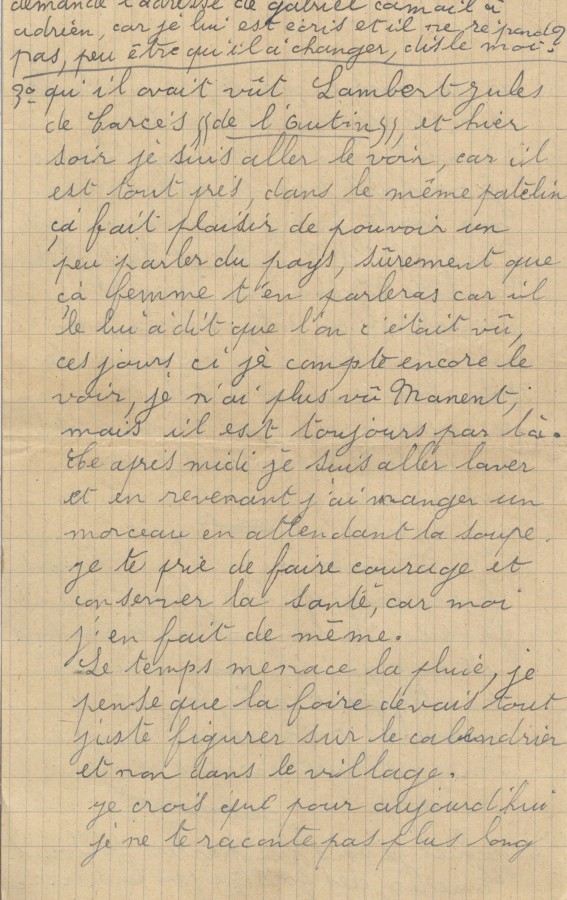 demande l'adresse de gabriel camail à
adrien, car je lui est écris et il ne réponds
pas, peu être qu'il à changer, dis le moi.
3º qu'il avait vût Lambert jules
de Carcés "de l'Autin", et hier
soir je suis aller le voir, car il
est tout près, dans le même patelin
çà fait plaisir de pouvoir un
peu parler du pays, sûrement que
çà femme t'en parleras car il
le lui à dit que l'on c'était vû,
ces jours ci je compte encore le
voir, je n'ai plus vû Manent,
mais il est toujours par là.
Ce après midi je suis aller laver
et en revenant j'ai manger un
morceau en attendant la soupe.
je te prie de faire courage et
conserver la santé, car moi
j'en fait de même.
Le temps menace la pluie, je
pense que la foire devais tout
juste figurer sur le calendrier
et non dans le village.
je crois que pour aujourd'hui
je ne te raconte pas plus long